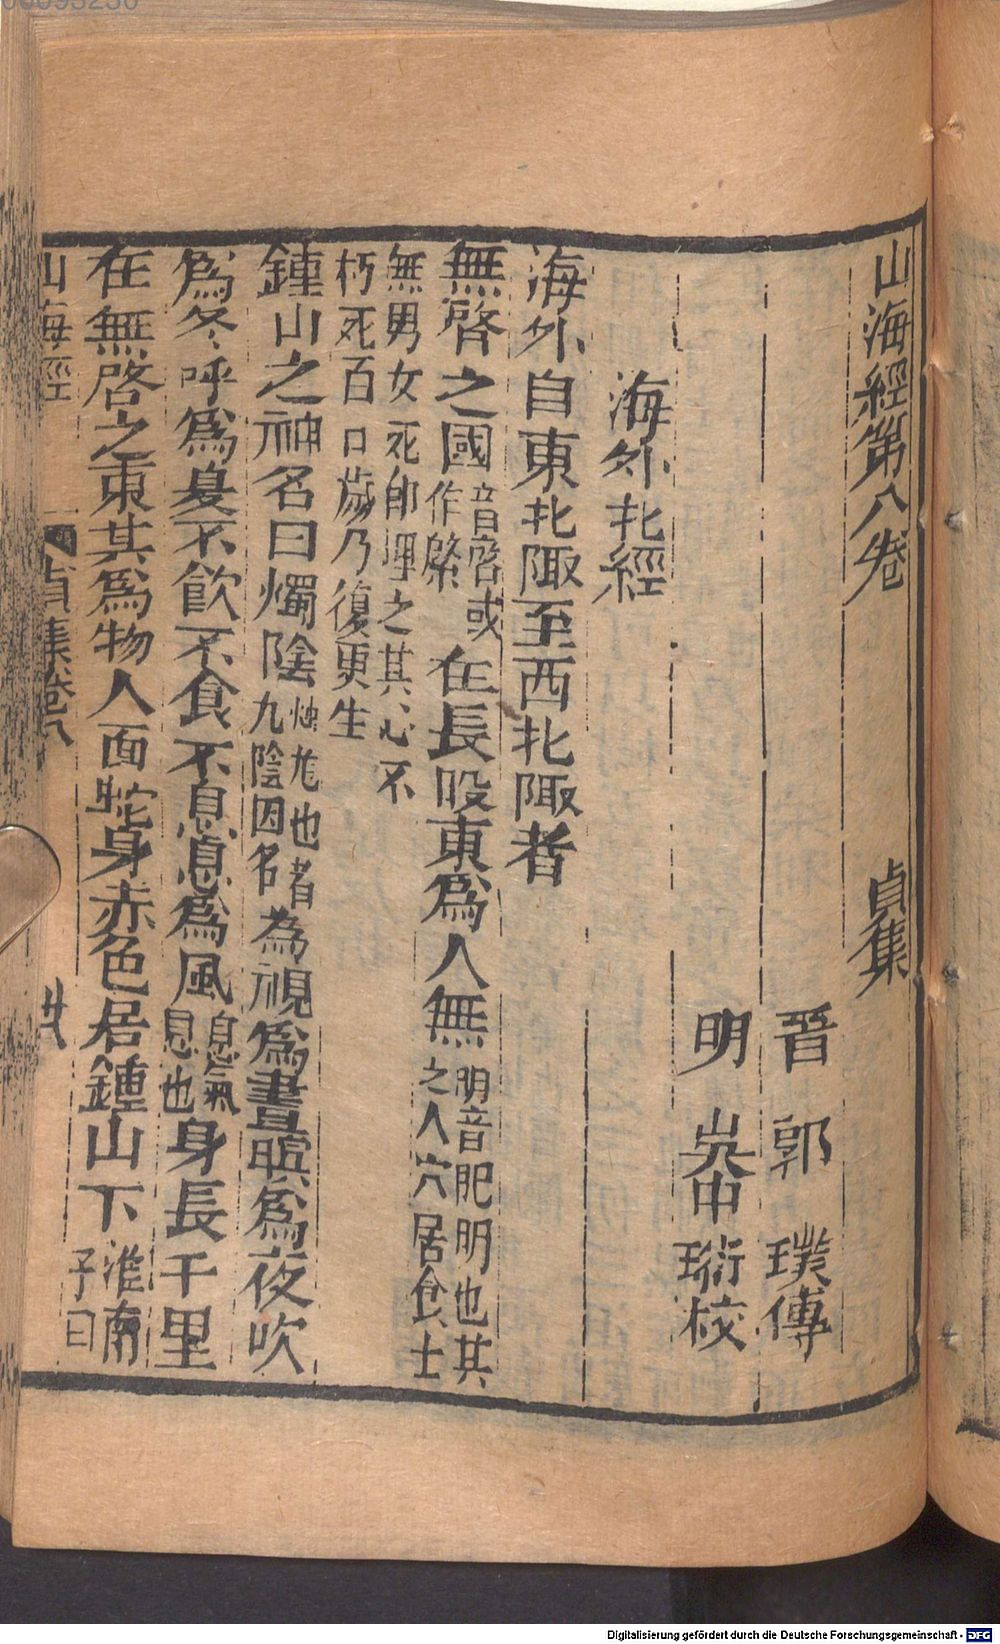 山海經第八卷　貞集
晉　郭　璞傳
明　　　珩校
海外北經
海外自東北陬至西北陬者
無啓之國音啓或作綮在長股東爲人無啓音肥腸也其之人穴居食士
無男女死卽埋之其心不
朽死百口歲乃復更生
鍾山之神名曰燭陰燭龍也者九陰因名為視爲晝瞑爲夜吹
爲冬呼爲夏不飲不食不息息爲風息氣息也身長千里
在無啓之東其爲物人面蛇身赤色居鍾山下淮南子曰
山海經　貞集卷八　廿
00093236
Digitalisierung gefördert durch die Deutsche Forschungsgemeinschaft - DFG